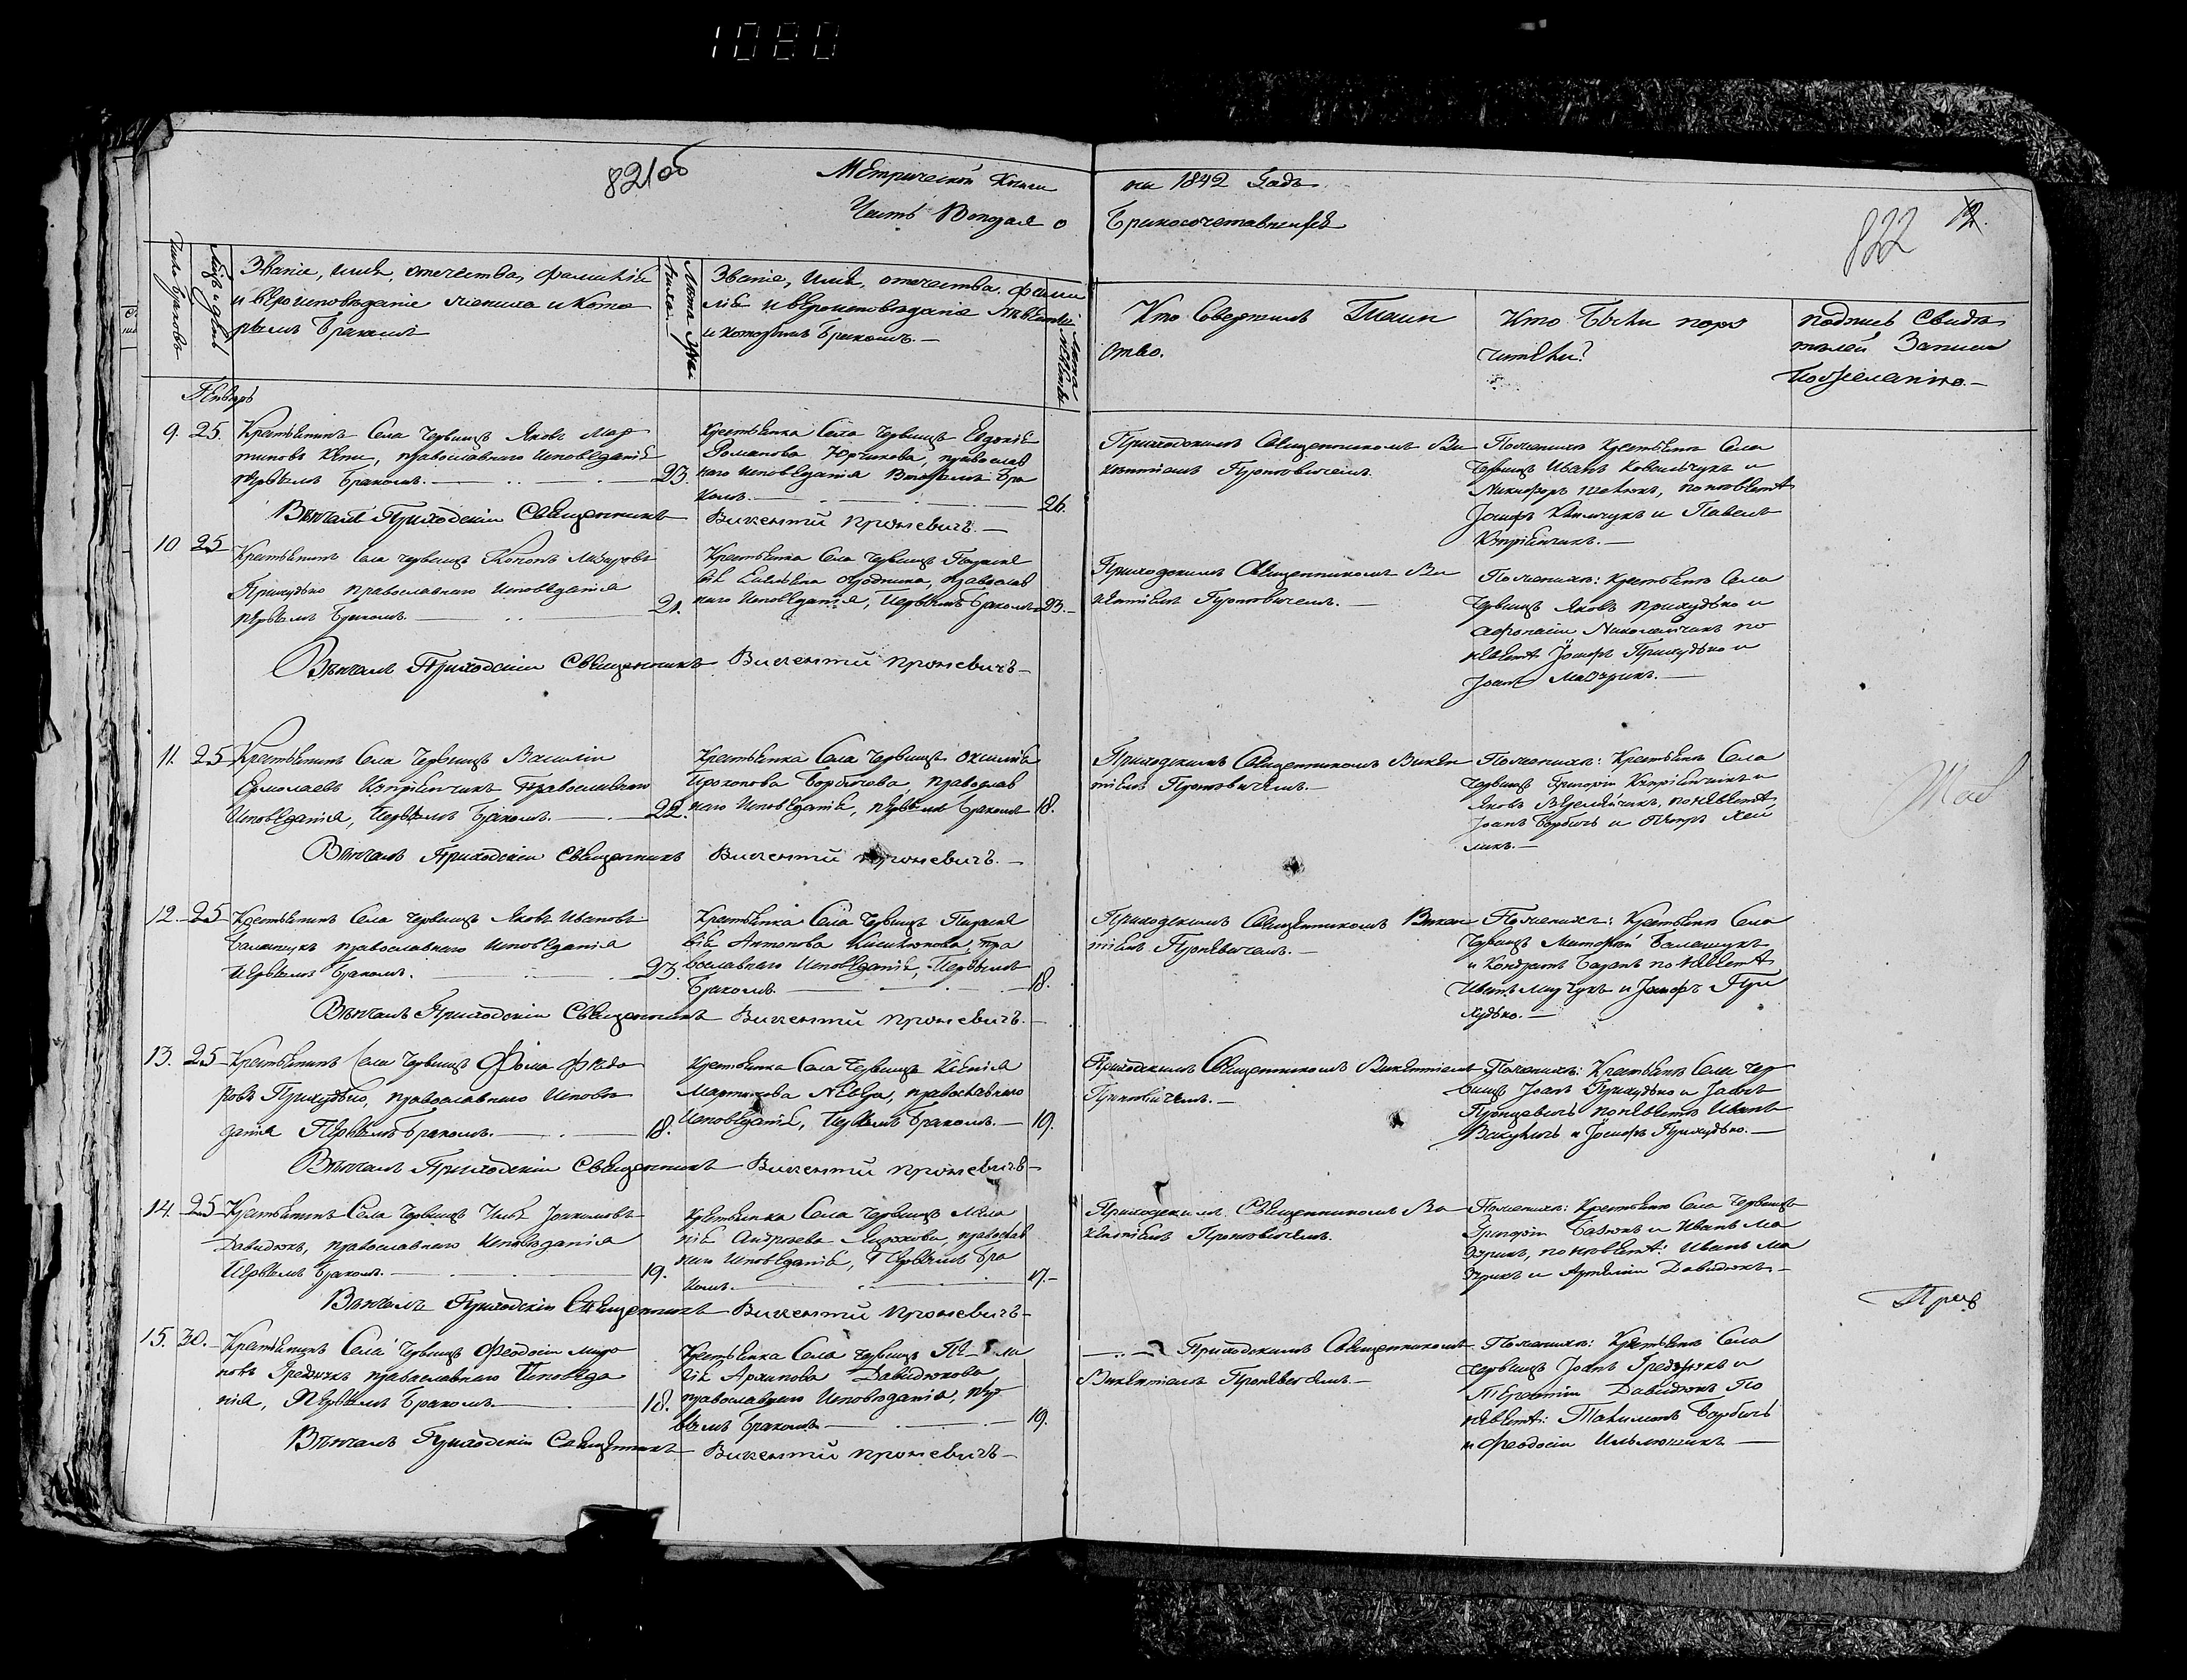 1080
821об
Метрической Книги
Часть Вторая о
на 1842 Годъ
Бракосочетавшихся
822 12.
Число браковъ
Мѣсяцъ и день
Званіе, имя, отечество, фамилія
и вѣроисповѣданіе жениха и кото
рымъ бракомъ
Лѣта Жениха
Званіе, Имя, отечество, фами
лія и вѣроисповѣданіе Невѣсты
и которымъ бракомъ.—
Лѣта Невѣсты
Кто Совершилъ Таин
ство.
Кто были пору
чители?
подпись Свидѣ
телей Записи
По Желанію.—
Январь
9. 25. Крестьянинъ Села Червищъ Яковъ Мар
тиновъ православнаго Исповѣданія
первымъ бракомъ. 23.
Крестьянка Села Червищъ Евдокія
Романова Юрчикова, православ
наго исповѣданія Вторымъ бра
комъ. 26.
Приходскимъ Священникомъ Ви
кентіемъ Проневичемъ.
По женихѣ Крестьяне Села
Червищъ Иванъ Ковальчукъ и
Никифоръ по невѣстѣ
Іосифъ Климчукъ и Павелъ
Купріянчикъ.—
Вѣнчалъ Приходскій Священникъ Викентій Проневичъ.—
10 25 Крестьянинъ Села Червищъ Кононъ Лазуровъ
Прихудько православнаго Исповѣданія
первымъ бракомъ. 21.
Крестьянка Села Червищъ Параске
вія православ
наго Исповѣданія, Первымъ бракомъ 23.—
Приходскимъ Священникомъ Ви
кентіемъ Проневичемъ.—
По женихѣ: Крестьяне Села
Червищъ Яковъ Прихудько и
Афонасій Николайчикъ по
невѣстѣ Іосифъ Прихудько и
Іоанъ Мазурикъ.—
Вѣнчалъ Приходскій Священникъ Викентій Проневичъ—
11. 25 Крестьянинъ Села Червищъ Василій
Ермолаевъ Купріянчикъ Православнаго
Исповѣданія, Первымъ бракомъ. 22.
Крестьянка Села Червищъ Оксимія
Прокопова Борбичева, Православ
наго Исповѣданія, первымъ бракомъ 18.
Приходскимъ Священникомъ Викен
тіемъ Проневичемъ.—
По женихѣ: Крестьяне Села
Червищъ Григорій Купріянчикъ и
Яковъ по невѣстѣ
Іоанъ Борбичъ и Петръ
Вѣнчалъ Приходскій Священникъ Викентій Проневичъ.—
12. 25 Крестьянинъ Села Червищъ Яковъ Ивановъ
Балащукъ православнаго Исповѣданія
Первымъ бракомъ. 23.
Крестьянка Села Червищъ Параске
вія Антонова пра
вославнаго Исповѣданія, Первымъ
бракомъ. 18.
Приходскимъ Священникомъ Викен
тіемъ Проневичемъ.—
По женихѣ: Крестьяне Села
Червищъ Балащукъ
и Кондратъ Базанъ по невѣстѣ
Иванъ и Іосифъ При
худько.—
Вѣнчалъ Приходскій Священникъ Викентій Проневичъ.—
13. 25 Крестьянинъ Села Червищъ Фома Федо
ровъ Прихудько, православнаго Исповѣ
данія Первымъ бракомъ. 18.
Крестьянка Села Червищъ Ксенія
Мартинова православнаго
Исповѣданія, Первымъ бракомъ.— 19.
Приходскимъ Священникомъ Викентіемъ
Проневичемъ.—
По женихѣ: Крестьяне Села Чер
вищъ Іоанъ Прихудько и Іоанъ
по невѣстѣ Иванъ
и Іосифъ Прихудько.—
Вѣнчалъ Приходскій Священникъ Викентій Проневичъ—
14. 25 Крестьянинъ Села Червищъ Илья Іоакимовъ
Давидюкъ, православнаго Исповѣданія
Первымъ бракомъ. 19.
Крестьянка Села Червищъ Мела
нія Андреева православ
наго Исповѣданія, Первымъ бра
комъ. 17.—
Приходскимъ Священникомъ Ви
кентіемъ Проневичемъ.
По женихѣ: Крестьяне Села Червищъ
Григорій и Иванъ Ма
зурикъ, по невѣстѣ: Иванъ Ма
зурикъ и Давидюкъ.—
Вѣнчалъ Приходскій Священникъ Викентій Проневичъ—
15. 30. Крестьянинъ Села Червищъ Феодосій Миро
новъ Гредюкъ православнаго Исповѣда
нія, Первымъ бракомъ. 18.
Крестьянка Села Червищъ
Архипова Давидюкова
православнаго Исповѣданія, пер
вымъ бракомъ 19.
Приходскимъ Священникомъ
Викентіемъ Проневичемъ.—
По женихѣ: Крестьяне Села
Червищъ Іоанъ Гредюкъ и
Терентій Давидюкъ По
невѣстѣ: Борбичъ
и Феодосій
Вѣнчалъ Приходскій Священникъ Викентій Проневичъ—